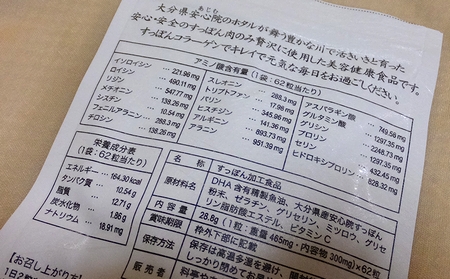 あじむ
大分県安心院のホタルが舞う豊かな川で活きいきと育った
安心・安全のすっぽん肉のみ贅沢に使用した美容健康食品です。
すっぽんコラーゲンでキレイで元気な毎日をお過ごしください。
アミノ酸含有量(1袋:62粒当たり)
イソロイシン 221.96 mg
ロイシン 490.11 mg
リジン 547.77 mg
メチオニン 138.26 mg
シスチン 10.54 mg
フェニルアラニン 288.3 mg
チロシン 138.26 mg
スレオニン 288.3 mg
トリプトファン 17.98 mg
バリン 345.96 mg
ヒスチジン 141.36 mg
アルギニン 893.73 mg
アラニン 951.39 mg
アスパラギン酸 749.58 mg
グルタミン酸 1297.35 mg
グリシン 2248.73 mg
プロリン 1297.35 mg
セリン 432.45 mg
ヒドロキシプロリン 828.32 mg
栄養成分表
(1袋:62粒当たり)
エネルギー 164.30 kcal
タンパク質 10.54 g
脂質 12.71 g
炭水化物 1.86 g
ナトリウム 18.91 mg
名称 すっぽん加工食品
原材料名 DHA含有精製魚油、大分県産安心院すっぽん
粉末、ゼラチン、グリセリン、ミツロウ、グリセ
リン脂肪酸エステル、ビタミンC
内容量 28.8g(1粒重量485mg・内容物300mg)×62粒
賞味期限 枠外下部に記載
保存方法 保存は高温多湿を避け、開封
しっかり閉めてお早
販売者 料亭や
【お召し上がり方
1日2粒